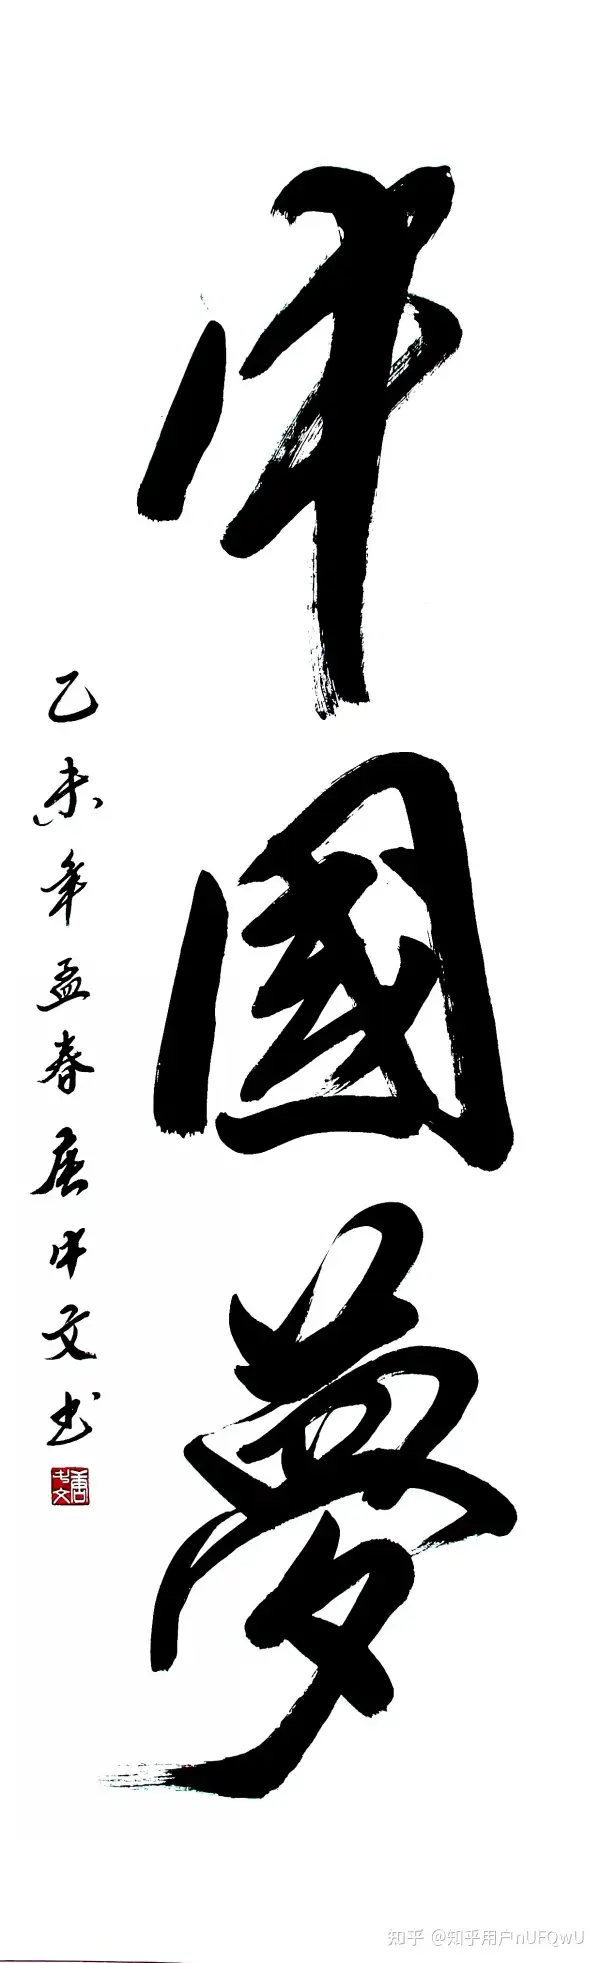 中國夢
乙未年孟春唐中文书
唐中文
知乎 @知乎用户nUFQwU